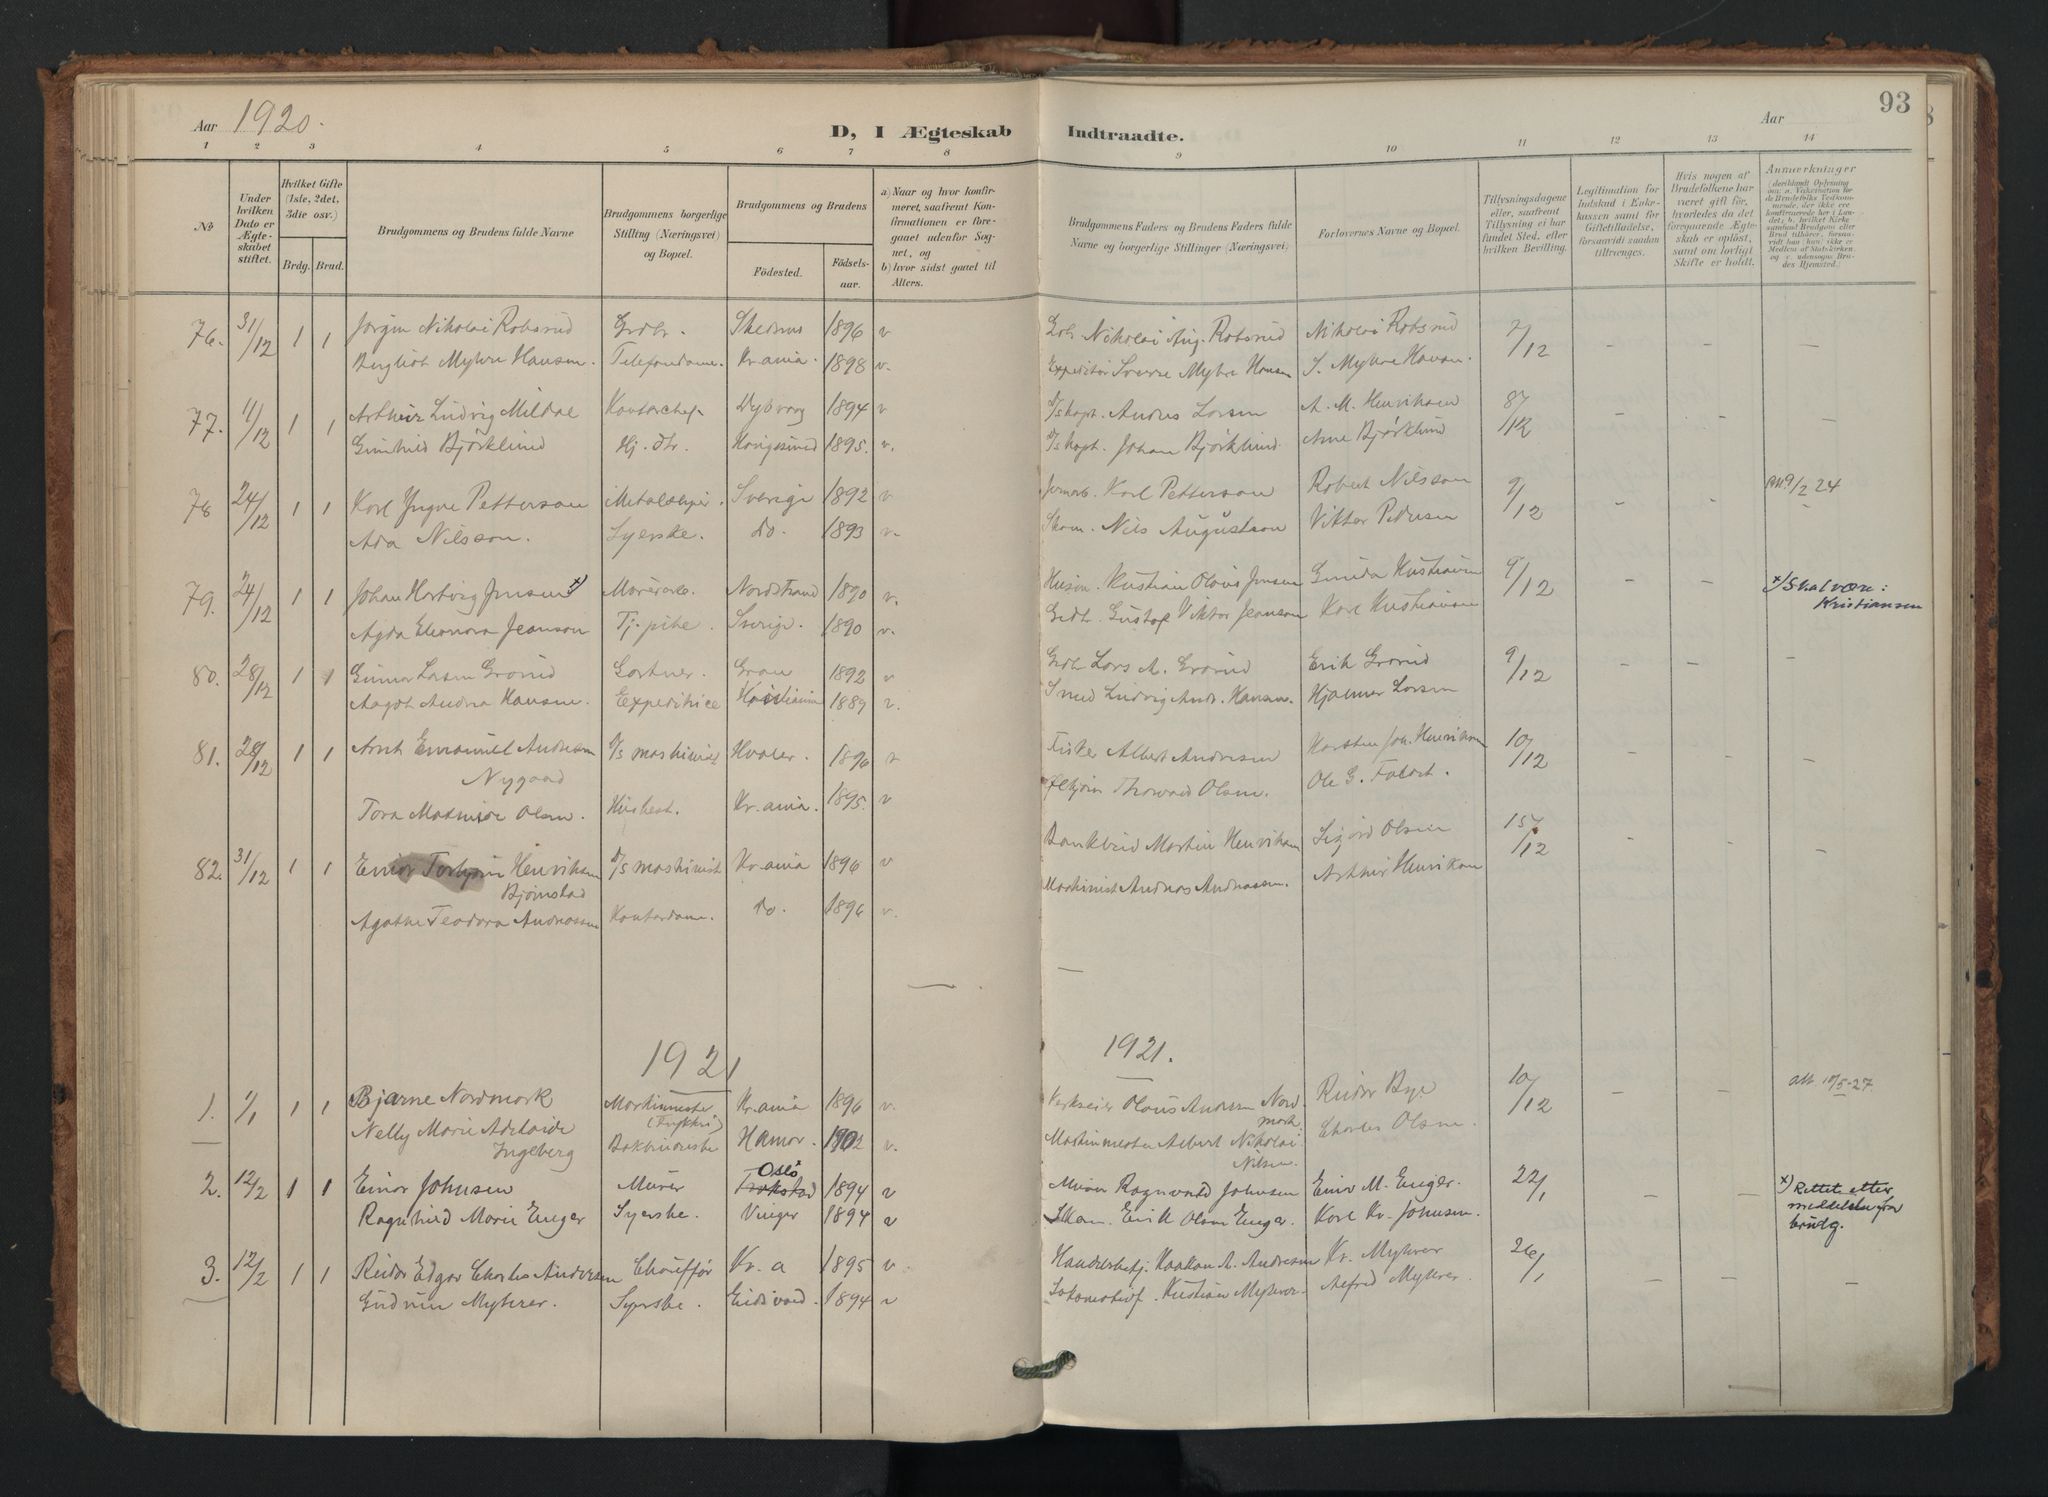 Aar 1920.
D, I Ægteskab Indtraadte.
Aar
93
1 2 3 4 5 6 7 8 9 10 11 12 13 14
No
Under hvilken Dato er Ægteskabet stiftet.
Hvilket Gifte (1ste, 2det, 3die osv.)
Brdg. Brud.
Brudgommens og Brudens fulde Navne
Brudgommens borgerlige Stilling (Næringsvei) og Bopæl.
Brudgommens og Brudens
Födested.
Födselsaar.
a) Naar og hvor konfirmeret, saafremt Konfirmationen er foregaaet udenfor Sognet, og
b) hvor sidst gaaet til Alters.
Brudgommens Faders og Brudens Faders fulde Navne og borgerlige Stillinger (Næringsvei).
Forlovernes Navne og Bopæl.
Tillysningsdagene eller, saafremt Tillysning ei har fundet Sted, efter hvilken Bevilling.
Legitimation for Indskud i Enkekassen samt for Giftetilladelse, forsaavidt saadan tiltrænges.
Hvis nogen af Brudefolkene har været gift för, hvorledes da det foregaaende Ægteskab er oplöst, samt om lovligt Skifte er holdt.
Anmærkninger
76. 31/12 1 1 Jörgen Nikolai Robsrud Grdbr. Skedsmo 1896 v. Nikolai Aug. Robsrud Nikolai Robsrud 7/12 - - -
Bergliot Myhre Hansen. Telefondame. Kr.ania. 1898 v. Expeditör Sverre Myhre Hansen S. Myhre Hansen.
77. 11/12 1 1 Arthur Ludvig Mildal Kontorchef. Dybvaag 1894 v D/S kapt. Anders Larsen A. M. Henriksen - - -
Gunhild Björklund Hj. dtr. 1895. v. D/S kapt. Johan Björklund. Arne Björklund
78 24/12 1 1 Karl Yngve Petterson Metalsliper. Sverige 1892 v Jernarb. Karl Petterson Robert Nilsson 9/12 - -
Ada Nilsson. Syerske. Do. 1893 v. Skom. Nils Augustson Viktor Pedersen
79. 24/12 1 1 Johan Hartvig Jensen x) Murerarb. Nordstrand 1890 v. Kristian Olaus Jensen Kristiansen 9/12 - - x) Skal være: Kristiansen
Agda Eleonora Jeanson Tj.pike. Sverige. 1890 v. Gustaf Viktor Jeanson Karl Kristiansen
80. 28/12 1 1 Gunnar Larsen Grorud Gartner. Gran 1892 v Grdb. Lars A. Grorud Erik Grorud 9/12 - - -
Aagot Andrea Hansen. Expeditrice Kristiania 1889 v. Smed Ludvig Andr. Hansen. Hjalmar Larsen
81. 28/12 1 1 Arnt Emanuel Andresen D/S maskinist Hvaler. 1896 v Fisker Albert Andresen Karsten Joh. Henriksen 10/12 - - -
Nygaard
Tora Mathilde Olsen. Husbest. Kr.ania. 1895. v Thorvald Olsen. Ole G.
82. 31/12 1 1 Einar Torbjörn Henriksen D/S maskinist Kr.ania 1896 v Bankbud Martin Henriksen Sigurd Olsen 15/12 - - -
Björnstad
Agathe Teodora Andreassen Kontordame. Do. 1896 v. Maskinist Andreas Andreassen. Arthur Henriksen
1921 1921.
1. 1/1 1 1 Bjarne Nordmark Maskinmester Kr.ania 1896 v. Verkseier Olaus Andersen Nordmark. Reidar Bye 10/12 - - att. 10/5-27.
Nelly Marie Adelaide Ingeberg Bokbinderske Hamar. 1902 v. Maskinmester Albert Nikolai Nilsen. Charles Olsen.
2. 12/2 1 1 Einar Johnsen Murer Oslo x Trøkstad 1894 v Murer Ragnvald Johnsen Einar M. Enger. 22/1 - - x) Rettet etter meddelelse fra brudg.
Ragnhild Marie Enger Syerske. Vinger 1894 v Skom. Erik Olsen Enger. Karl Kr. Johnsen.
3. 12/2 1 1 Reidar Edgar Charles Andersen Chauffør Kr.a 1895 v Haakon A. Andresen Kr. Myhrer 26/1 - - -
Gudrun Myhrer. Syerske. Eidsvold. 1894 v Kristian Myhrer. Alfred Myhrer.